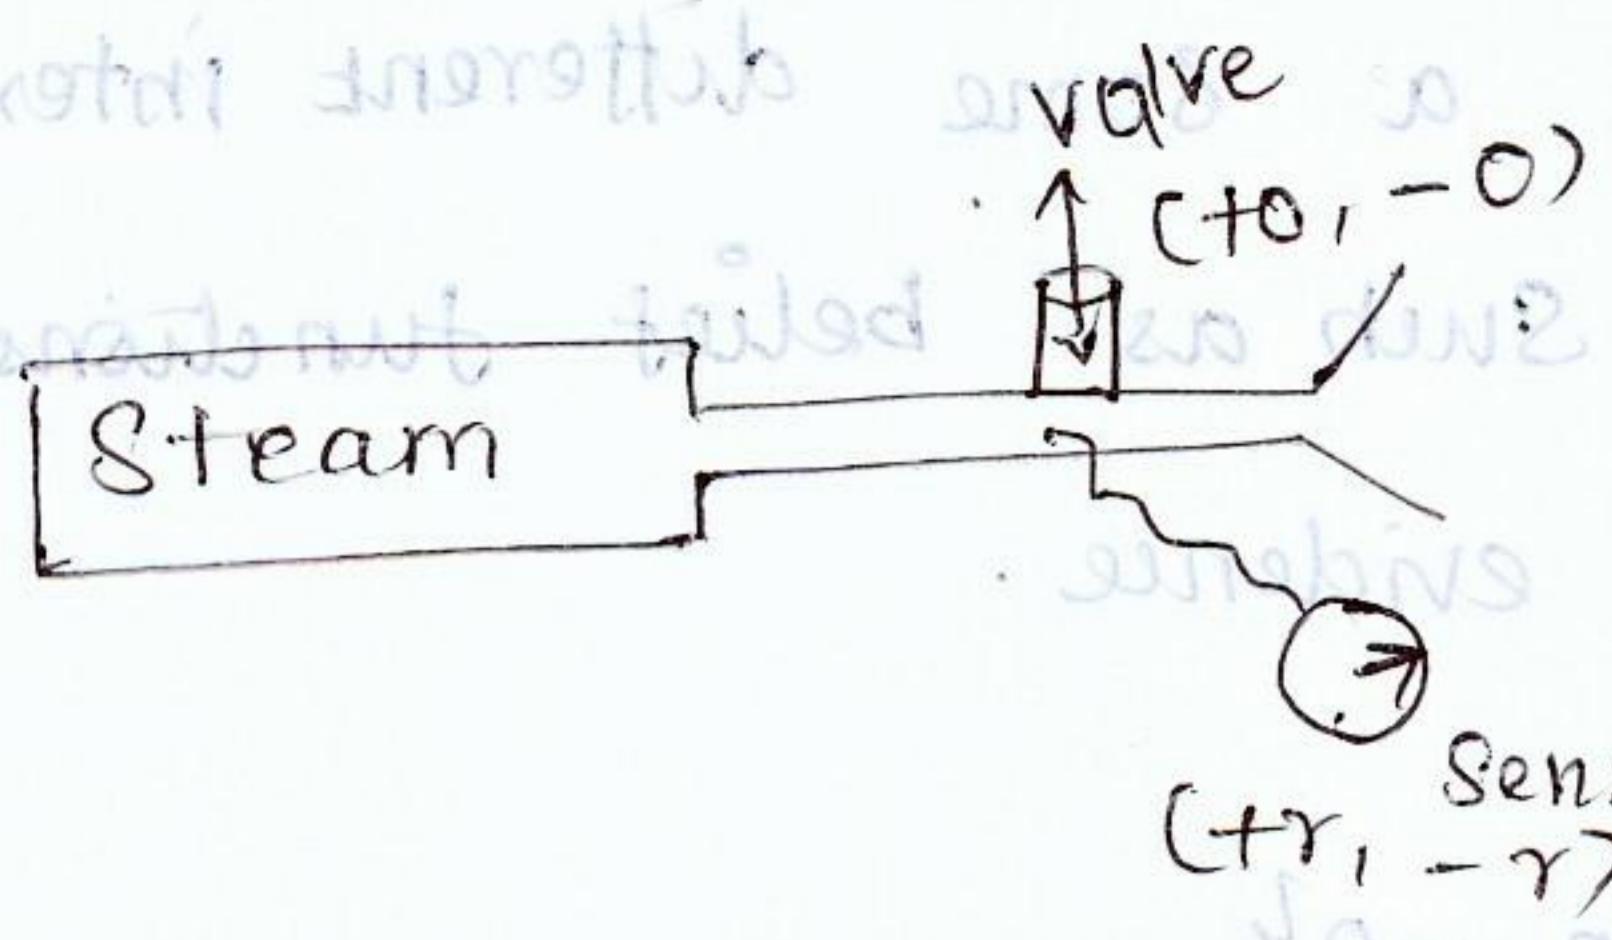 valve
(+o, -o)
Steam
Sen
(+r, -r)